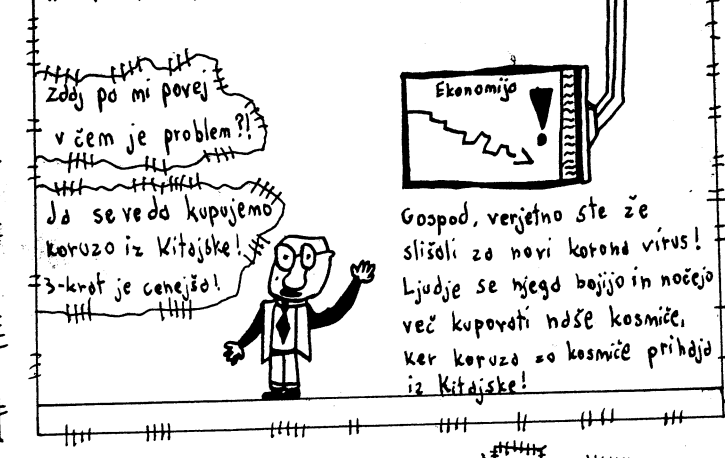 Zdaj pa mi povej
v čem je problem?!
Ja seveda kupujemo
koruzo iz Kitajske!
3-krat je cenejša!
Ekonomija
!
Gospod, verjetno ste že
slišali za novi korona virus!
Ljudje se njega bojijo in nočejo
več kupovati naše kosmiče,
ker koruza za kosmiče prihaja
iz Kitajske!